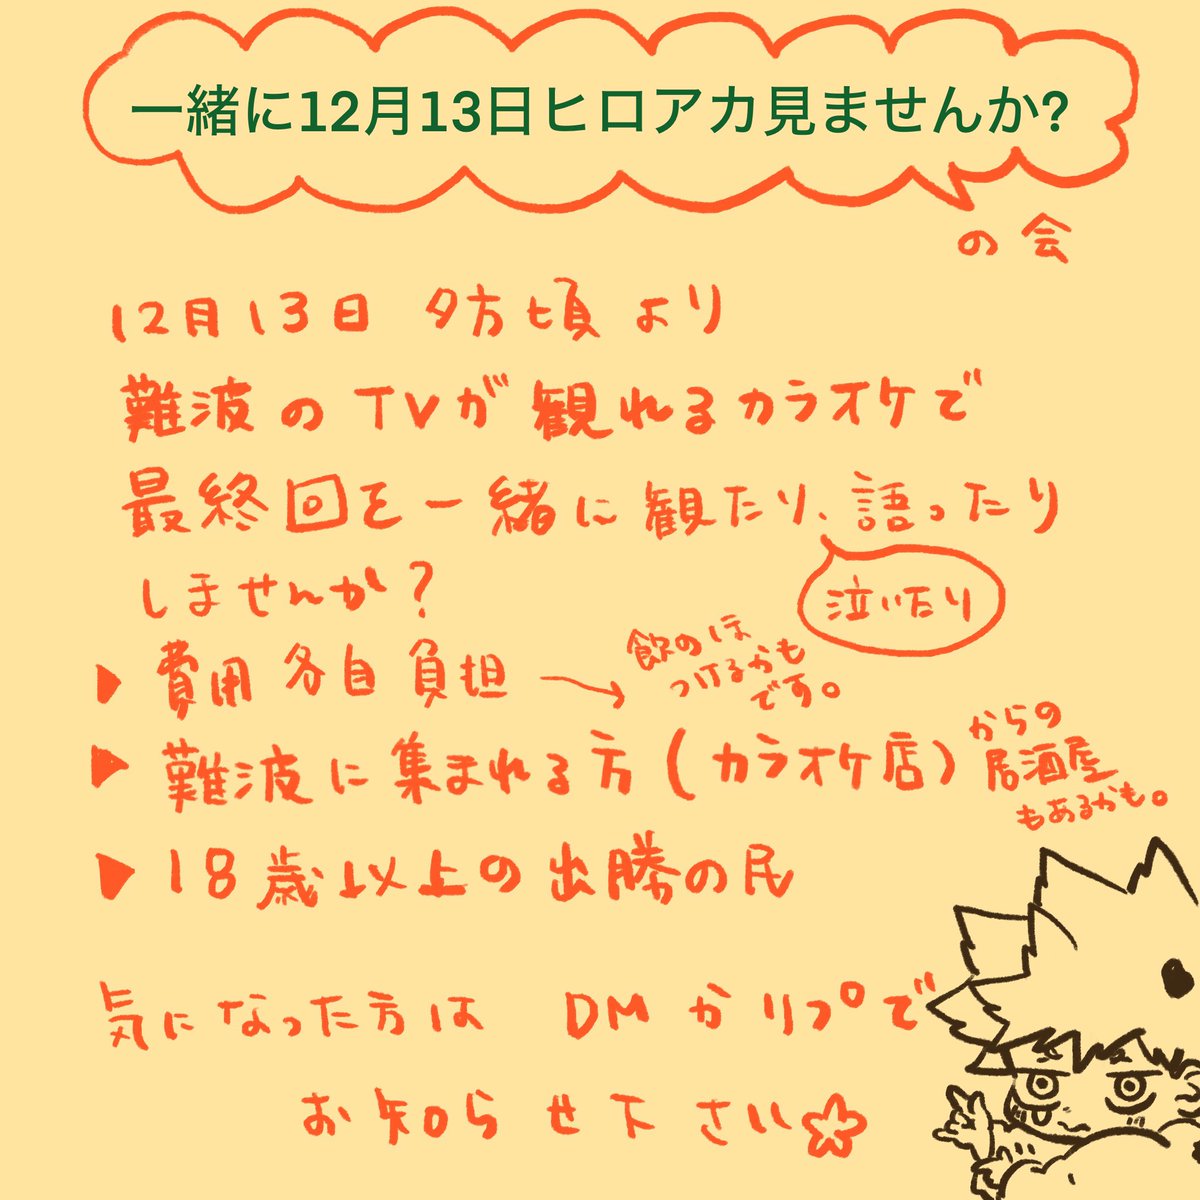 一緒に12月13日ヒロアカ見ませんか?
の会
12月13日 夕方頃より
難波のTVが観れるカラオケで
最終回を一緒に観たり、語ったり
泣いたり
しませんか?
▶ 費用各自負担 → 飲みほ
つけるかも
です。
▶ 難波に集まれる方(カラオケ店)
からの
居酒屋
もあるかも。
▶ 18歳以上の出勝の民
気になった方は DMかリプで
お知らせ下さい☆